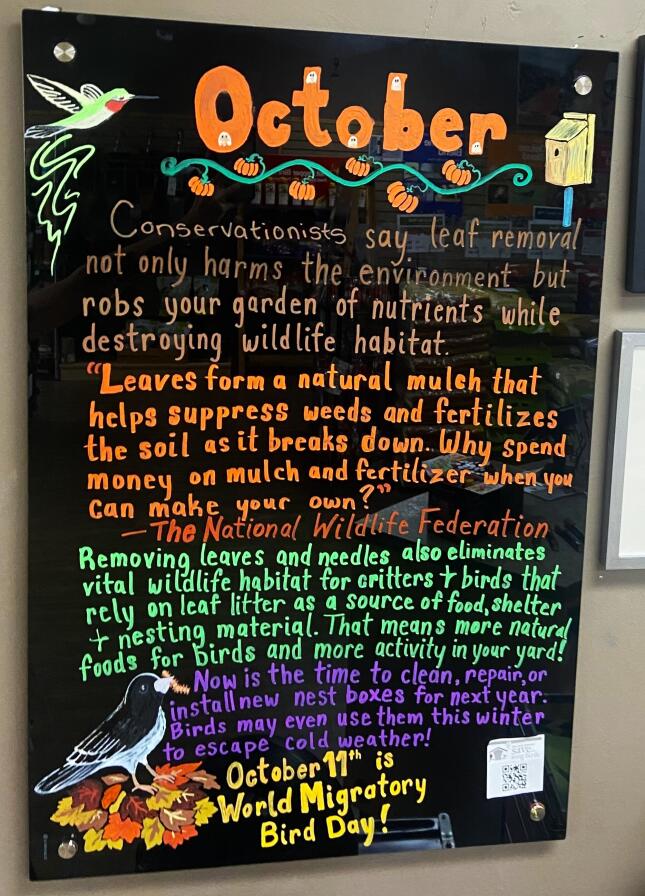 October
Conservationists say leaf removal
not only harms the environment but
robs your garden of nutrients while
destroying wildlife habitat.
"Leaves form a natural mulch that
helps suppress weeds and fertilizes
the soil as it breaks down. Why spend
money on mulch and fertilizer when you
can make your own?"
— The National Wildlife Federation
Removing leaves and needles also eliminates
vital wildlife habitat for critters + birds that
rely on leaf litter as a source of food, shelter
+ nesting material. That means more natural
foods for birds and more activity in your yard!
Now is the time to clean, repair, or
install new nest boxes for next year.
Birds may even use them this winter
to escape cold weather!
October 11th is
World Migratory
Bird Day!
save